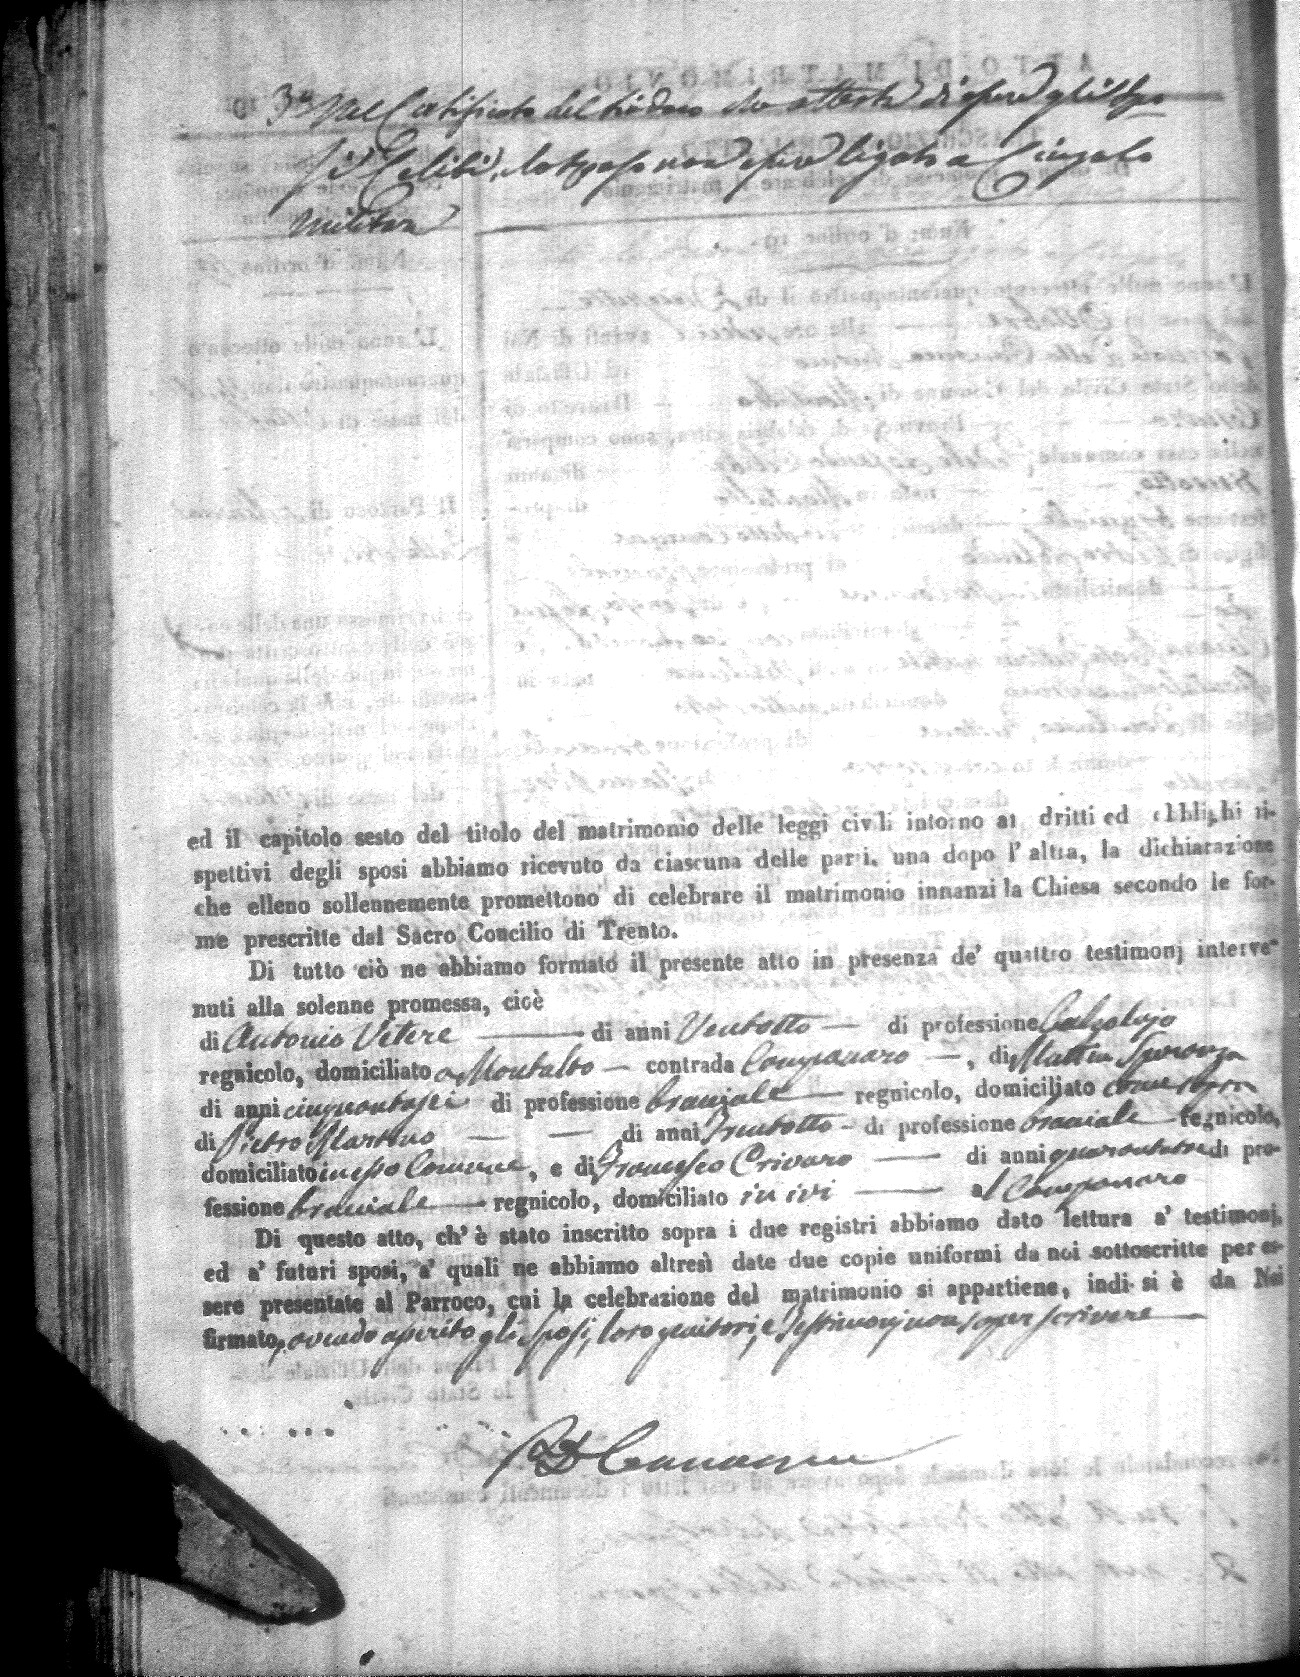 3° Nel Certificato del Sindaco che attesta di essere gli Sposi
Celibi, lo sposo non essere ligato a Cingolo
militare
ed il capitolo sesto del titolo del matrimonio delle leggi civili intorno ai dritti ed obblighi ri-
spettivi degli sposi abbiamo ricevuto da ciascuna delle parti, una dopo l' altra, la dichiarazione
che elleno sollennemente promettono di celebrare il matrimonio innanzi la Chiesa secondo le for-
me prescritte dal Sacro Concilio di Trento.
Di tutto ciò ne abbiamo formato il presente atto in presenza de' quattro testimonj interve-
nuti alla solenne promessa, cioè
di Antonio Vetere — di anni Ventotto — di professione Calzolajo
regnicolo, domiciliato a Montalto — contrada Companaro —, di Mattia Speranza
di anni cinquantasei di professione braciale — regnicolo, domiciliato come sopra
di Pietro Martino — — di anni Trentotto - di professione braciale - regnicolo,
domiciliato in esso Comune, e di Francesco Crivaro — di anni quarantatre di pro-
fessione braciale — regnicolo, domiciliato in ivi — al Companaro
Di questo atto, ch' è stato inscritto sopra i due registri abbiamo dato lettura a' testimonj,
ed a' futuri sposi, a' quali ne abbiamo altresì date due copie uniformi da noi sottoscritte per es-
sere presentate al Parroco, cui la celebrazione del matrimonio si appartiene, indi si è da Noi
firmato, avendo asserito gli Sposi, loro genitori, e Testimonj non saper scrivere —